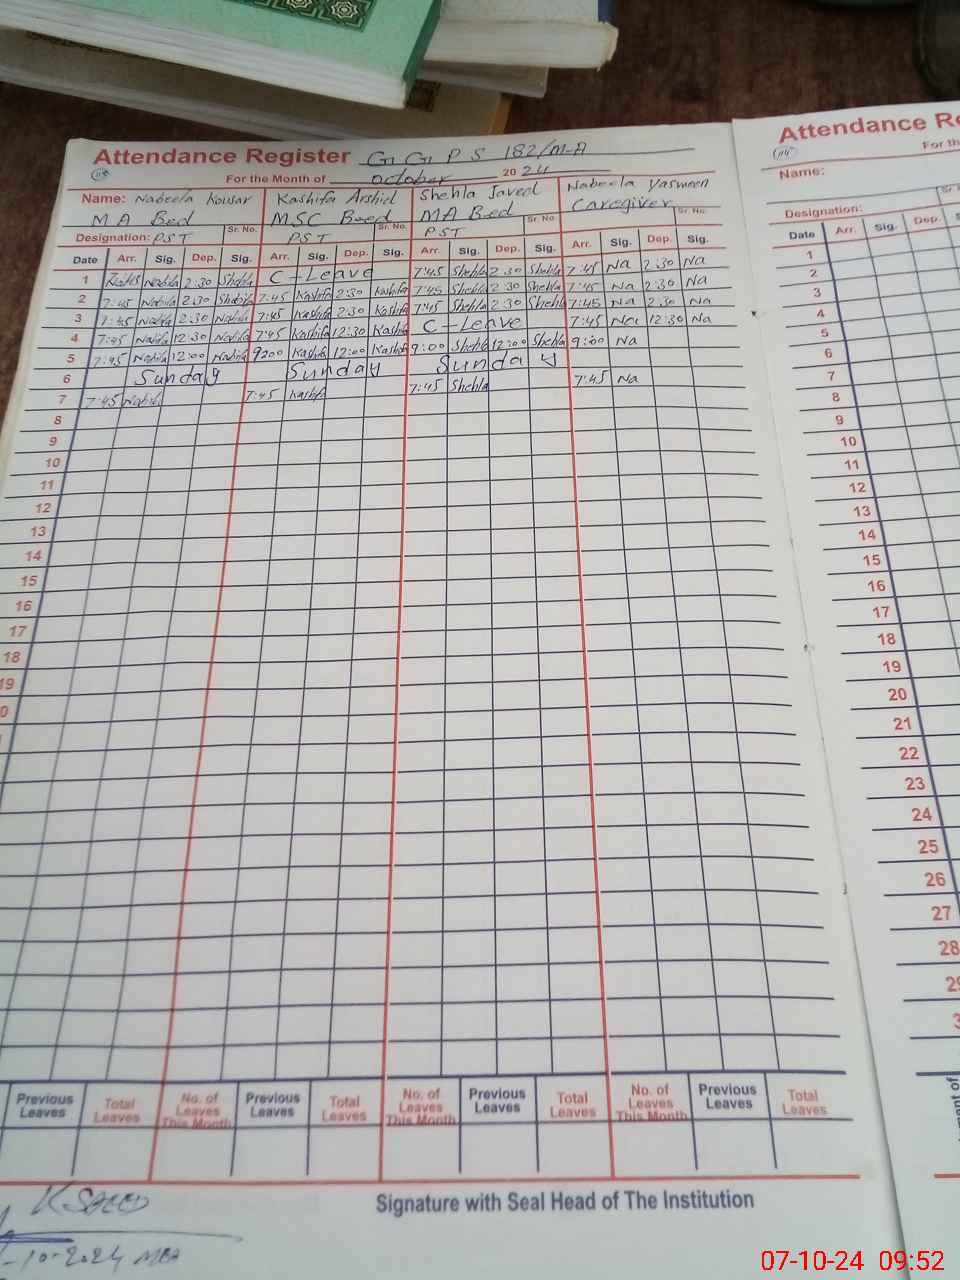 Attendance Register G G P S 182/M-A
For the Month of October 2024
Name: Nabeela Kousar Kashifa Arshid Shehla Javed Nabeela Yasmeen
M A Bed MSC B-ed MA Bed Caregiver
Designation: PST Sr. No. PST Sr. No. PST Sr. No. Sr. No.
Date Arr. Sig. Dep. Sig. Arr. Sig. Dep. Sig. Arr. Sig. Dep. Sig. Arr. Sig. Dep. Sig.
1 Nabila 2:30 C-Leave 7:45 Shehla 2:30 Shehla 7:45 Na 2:30 Na
2 7:45 Nabila 2:30 7:45 Kashifa 2:30 Kashifa 7:45 Shehla 2:30 Shehla 7:45 Na 2:30 Na
3 7:45 Nabila 2:30 Nabila 7:45 Kashifa 2:30 Kashifa 7:45 Shehla 2:30 Shehla 7:45 Na 2:30 Na
4 7:45 Nabila 12:30 Nabila 7:45 Kashifa 12:30 Kashifa C-Leave 7:45 Na 12:30 Na
5 7:45 Nabila 12:00 Nabila 9:00 Kashifa 12:00 Kashifa 9:00 Shehla 12:00 Shehla 9:00 Na
6 Sunday Sunday Sunday
7 7:45 Nabila 7:45 Kashifa 7:45 Shehla 7:45 Na
8
9
10
11
12
13
14
15
16
17
18
19
0
Previous Leaves Total Leaves No. of Leaves This Month Previous Leaves Total Leaves No. of Leaves This Month Previous Leaves Total Leaves No. of Leaves This Month Previous Leaves Total Leaves
Signature with Seal Head of The Institution
K Saeed
-10-2024
Attendance Re
For th
Name:
Designation:
Date Arr. Sig. Dep.
1
2
3
4
5
6
7
8
9
10
11
12
13
14
15
16
17
18
19
20
21
22
23
24
25
26
27
28
29
3
07-10-24 09:52